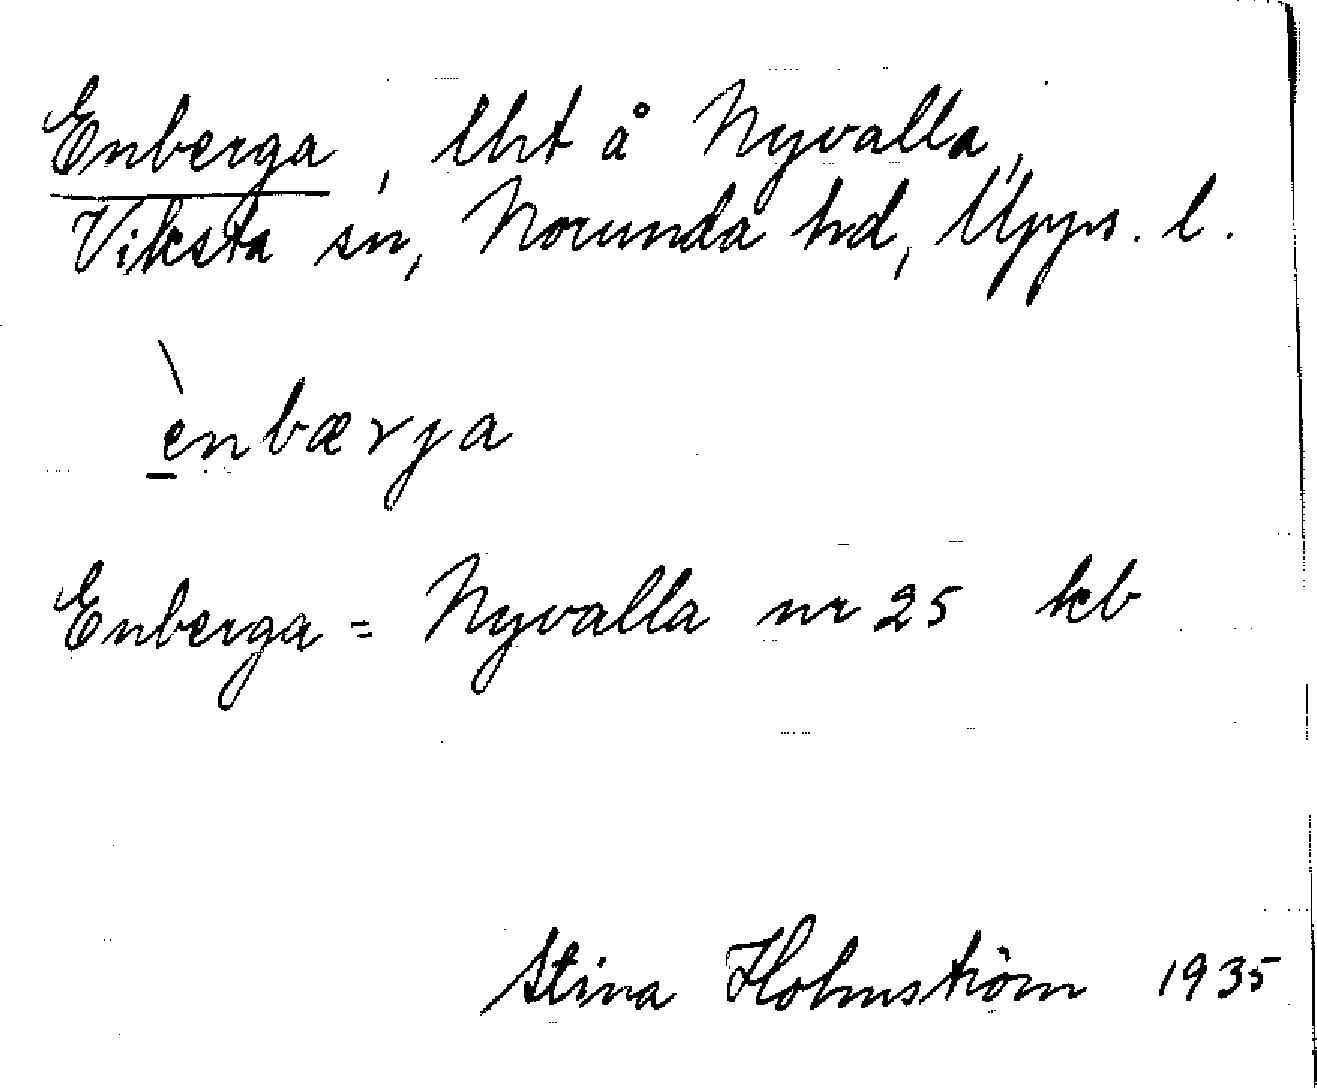 Enberga, lht å Nyvalla,
Viksta sn, Norunda hd, Upps. l.
ènbærja
Enberga = Nyvalla nr 25 kb
Stina Holmström 1935